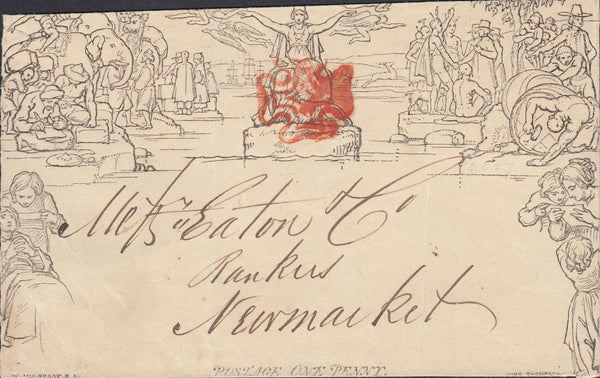 Messrs Eaton & Co
Bankers
Newmarket
POSTAGE ONE PENNY.
W. MULREADY. R.A.
JOHN THOMPSON